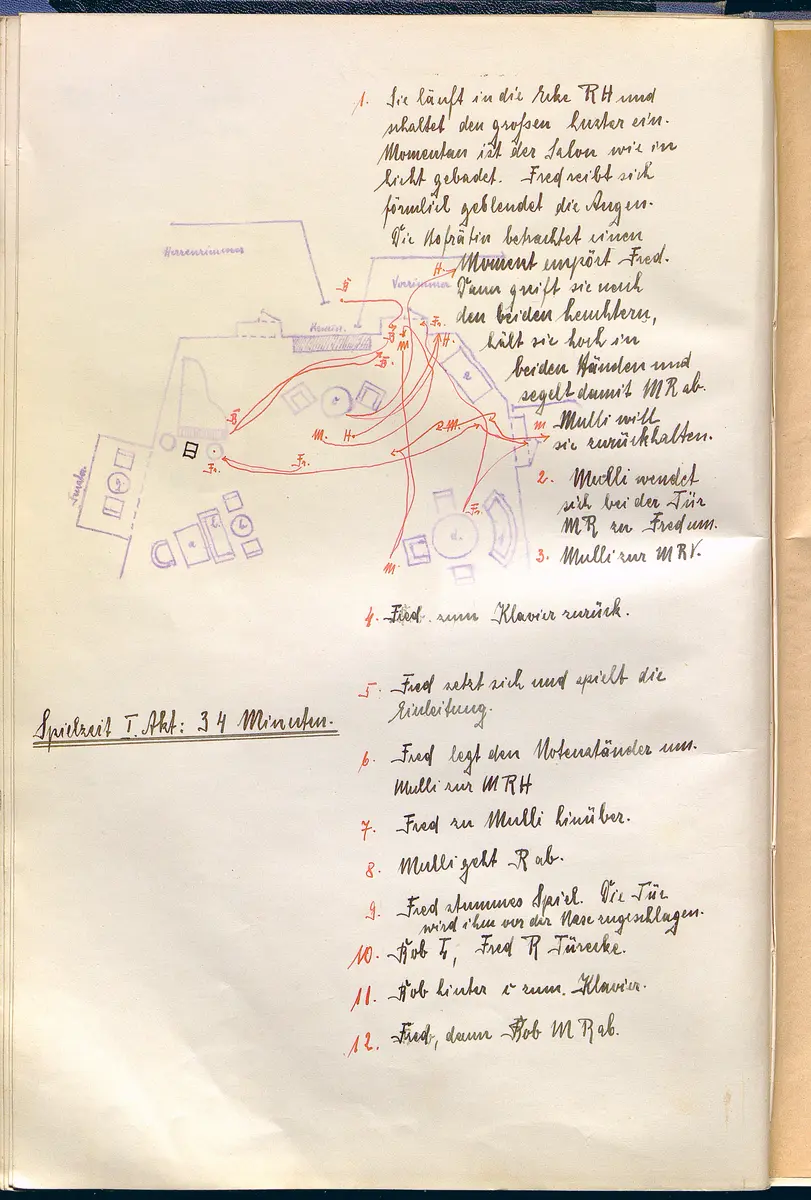 1. Sie läuft in die Ecke RH und
schaltet den großen Luster ein.
Momentan ist der Salon wie in
Licht gebadet. Fred reibt sich
förmlich geblendet die Augen.
Die Hofrätin betrachtet einen
Moment empört Fred.
Dann greift sie nach
den beiden Leuchtern,
hält sie hoch in
beiden Händen und
segelt damit MR ab.
Mulli will
sie zurückhalten.
2. Mulli wendet
sich bei der Tür
MR zu Fred um.
3. Mulli zur MRV.
4. Fred zum Klavier zurück.
5. Fred setzt sich und spielt die
Einleitung.
6. Fred legt den Notenständer um.
Mulli zur MRH
7. Fred zu Mulli hinüber.
8. Mulli geht R ab.
9. Fred stummes Spiel. Die Tür
wird ihm vor der Nase zugeschlagen.
10. Bob L, Fred R Türecke.
11. Bob hinter c zum Klavier.
12. Fred, dann Bob MR ab.
Spielzeit I. Akt: 34 Minuten.
Herrenzimmer
Vorzimmer
Kamin
Fenster
B
H.
Fr.
B
M
Fr.
H.
B.
B
M.
H.
M.
M
Fr.
Fr.
Fr.
M
a
b
c
d.
e